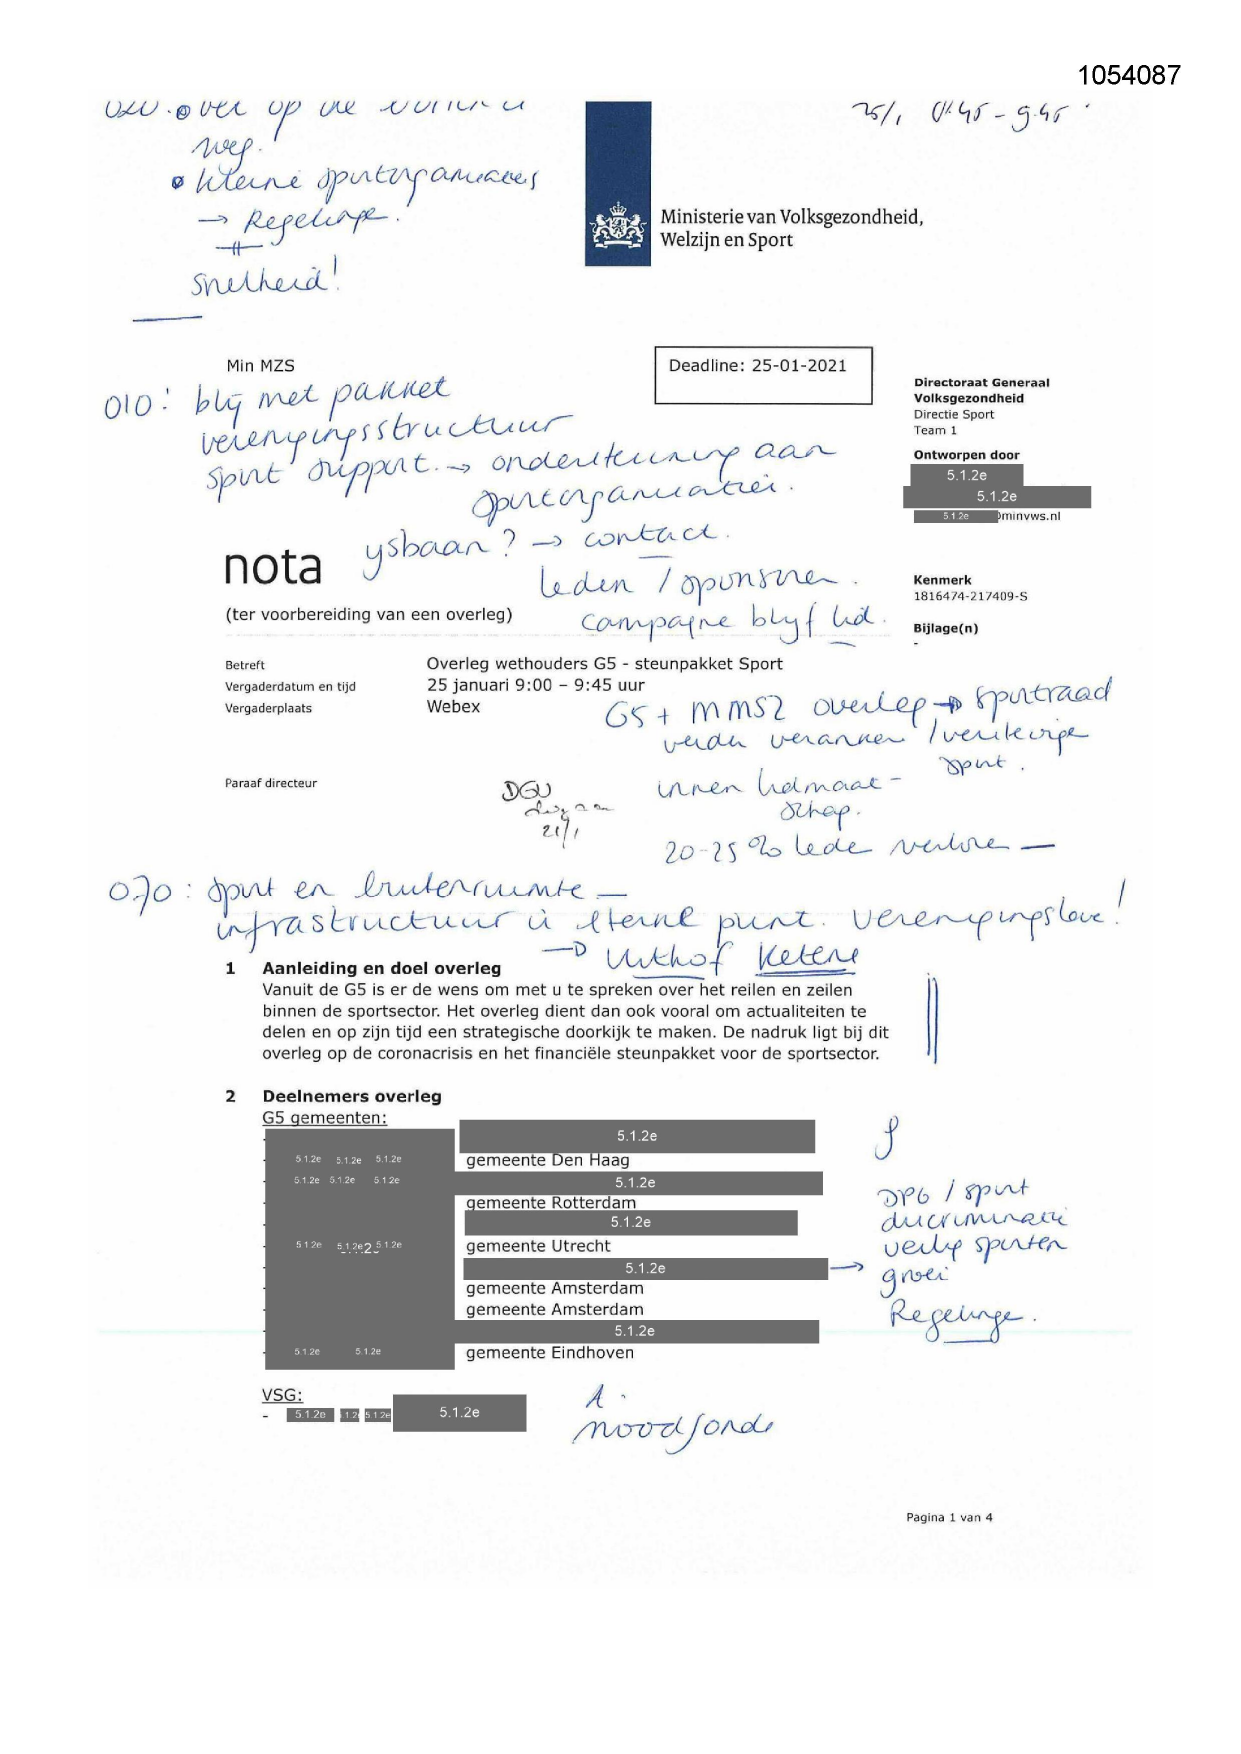 1054087
over op de
weg.
25/1 8:45 - 9.45
kleine sportorganisaties
→ Regelinge!
snelheid!
Ministerie van Volksgezondheid,
Welzijn en Sport
Min MZS
Deadline: 25-01-2021
Directoraat Generaal
Volksgezondheid
Directie Sport
Team 1
Ontworpen door
5.1.2e
5.1.2e
5.1.2e minvws.nl
010: blij met pakket
verenigingsstructuur
sport support. → ondersteuning aan
sportorganisaties.
ysbaan? → contact.
nota
leden / sponsoren.
(ter voorbereiding van een overleg)
campagne blijf lid.
Kenmerk
1816474-217409-S
Bijlage(n)
-
Betreft Overleg wethouders G5 - steunpakket Sport
Vergaderdatum en tijd 25 januari 9:00 – 9:45 uur
Vergaderplaats Webex
G5 + MMSZ overleg → sportraad
verder veranker / verstevige
sport.
Paraaf directeur
21/1
innen lidmaat-
schap.
20-25 % lede verlore —
070: sport en buitenruimte —
infrastructuur is sterke punt. verenigingsleve!
→ Uithof Ketene
1 Aanleiding en doel overleg
Vanuit de G5 is er de wens om met u te spreken over het reilen en zeilen
binnen de sportsector. Het overleg dient dan ook vooral om actualiteiten te
delen en op zijn tijd een strategische doorkijk te maken. De nadruk ligt bij dit
overleg op de coronacrisis en het financiële steunpakket voor de sportsector.
2 Deelnemers overleg
G5 gemeenten:
5.1.2e
5.1.2e 5.1.2e 5.1.2e gemeente Den Haag
5.1.2e 5.1.2e 5.1.2e 5.1.2e
gemeente Rotterdam
5.1.2e
5.1.2e 5.1.2e 5.1.2e gemeente Utrecht
5.1.2e →
gemeente Amsterdam
gemeente Amsterdam
5.1.2e
5.1.2e 5.1.2e gemeente Eindhoven
/ sport
discriminatie
veilig sporten
groei
Regelinge.
VSG:
- 5.1.2e 5.1.2e 5.1.2e 5.1.2e
1.
noodfonds
Pagina 1 van 4